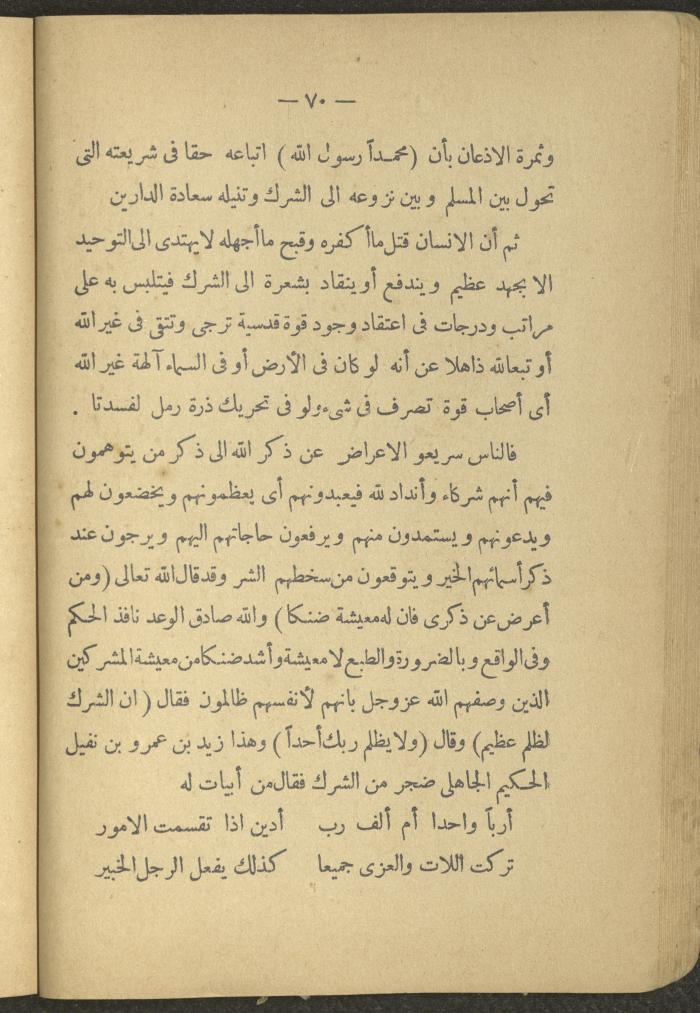 — ٧٠ —
وثمرة الاذعان بأن (محمداً رسول الله) اتباعه حقا فى شريعته التى
تحول بين المسلم وبين نزوعه الى الشرك وتنيله سعادة الدارين
ثم أن الانسان قتل ماأكفره وقبح ماأجهله لايهتدى الى التوحيد
الا بجهد عظيم ويندفع أوينقاد بشعرة الى الشرك فيتلبس به على
مراتب ودرجات فى اعتقاد وجود قوة قدسية ترجى وتتقى فى غير الله
أو تبعالله ذاهلا عن أنه لو كان فى الأرض أو فى السماء آلهة غير الله
أى أصحاب قوة تصرف فى شىء ولو فى تحريك ذرة رمل لفسدتا .
فالناس سريعو الاعراض عن ذكر الله الى ذكر من يتوهمون
فيهم أنهم شركاء وأنداد لله فيعبدونهم أى يعظمونهم ويخضعون لهم
ويدعونهم ويستمدون منهم ويرفعون حاجاتهم اليهم ويرجون عند
ذكر أسمائهم الخير ويتوقعون من سخطهم الشر وقدقال الله تعالى (ومن
أعرض عن ذكرى فان له معيشة ضنكا) والله صادق الوعد نافذ الحكم
وفى الواقع وبالضرورة والطبع لامعيشة وأشد ضنكا من معيشة المشركين
الذين وصفهم الله عز وجل بانهم لأنفسهم ظالمون فقال (ان الشرك
لظلم عظيم) وقال (ولا يظلم ربك أحداً) وهذا زيد بن عمرو بن نفيل
الحكيم الجاهلى ضجر من الشرك فقال من أبيات له
أرباً واحدا أم ألف رب أدين اذا تقسمت الامور
تركت اللات والعزى جميعا كذلك يفعل الرجل الخبير